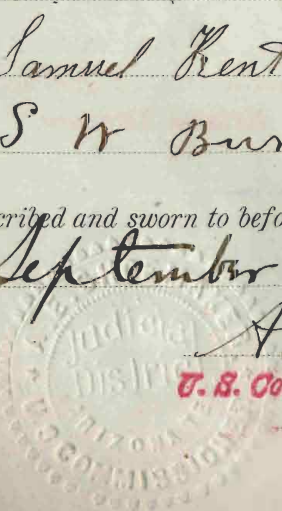 Samuel Kent
S W Bur
cribed and sworn to befo
September
A
U. S. Co
Judicial
District
ARIZONA
U S COMMISSION